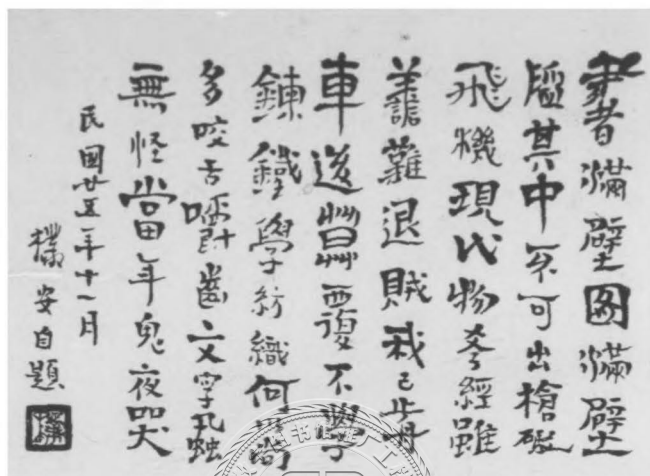 書滿壁图滿壁
其中不可出槍礮
飛機現代物孝經雖
善難退賊我已
車送復不學
鍊鐵學紡織何
多咬舌嚼齒文字蝨
無怪當年鬼夜哭
民國廿五年十一月
樸安自題